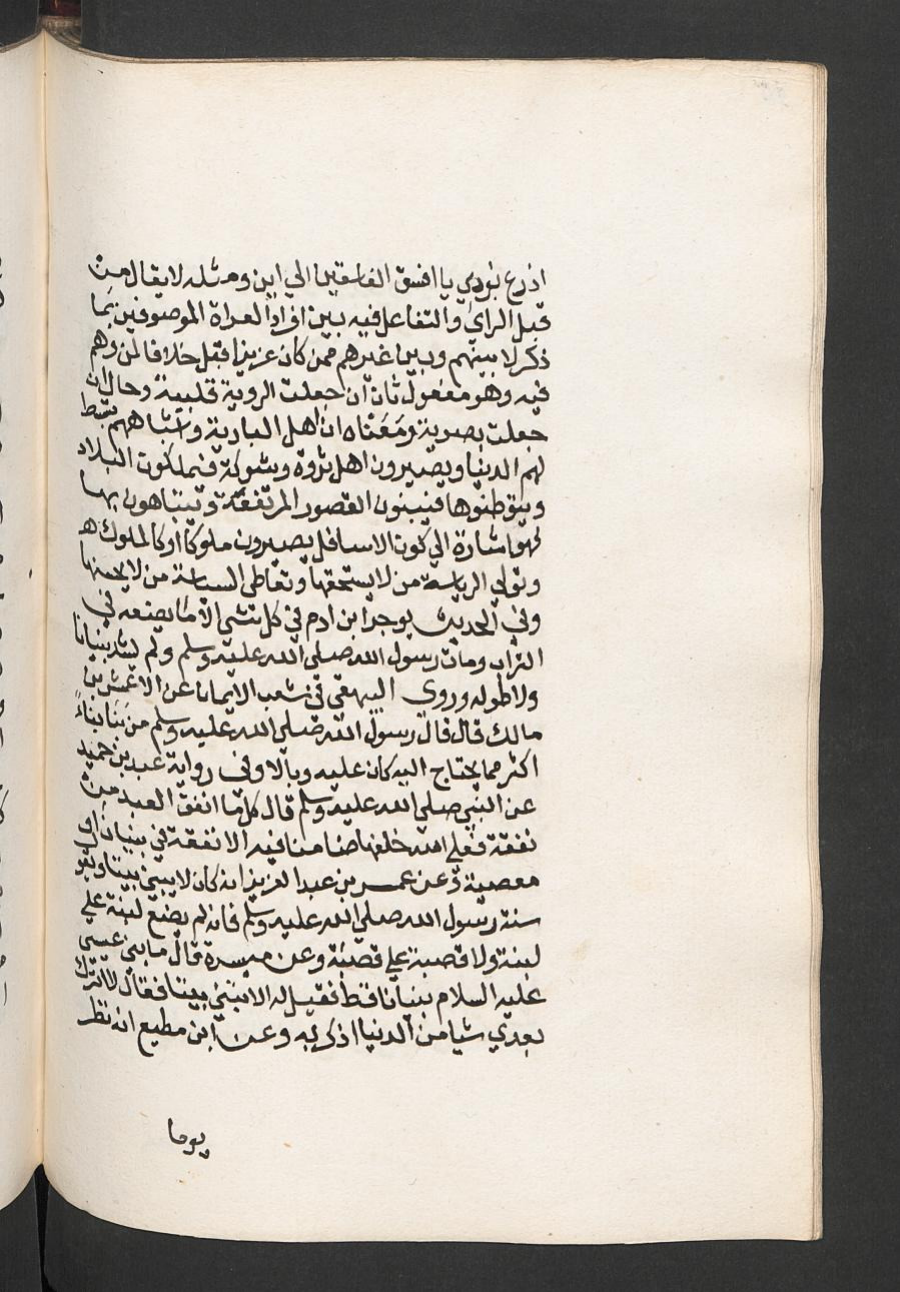 اذرع نودي يا افسق الفاسقين الي اين ومثله لا يقال من
قبل الراي والتفاعل فيه بين افراد العراة الموصوفين بما
ذكر لا بينهم وبين غيرهم ممن كان عزيزا فقل خلافا لمن وهم
فيه وهو مفعول ثان ان جعلت الروية قلبية وحال ان
جعلت بصرية ومعناه ان اهل البادية واشباههم تبسط
لهم الدنيا ويصيرون اهل ثروة وشوكة فيملكون البلاد
ويتوطنوها فيبنون القصور المرتفعة ويتباهون بها
فهو اشارة الي كون الاسافل يصيرون ملوكا او كالملوك
وتولي الرياسة من لا يستحقها وتعاطي السياسة من لا يحسنها
وفي الحديث يوجر ابن ادم في كل شي الا ما يضعه في
التراب ومات رسول الله صلي الله عليه وسلم ولم يشد بنيانا
ولا طوله وروى البيهقي في شعب الايمان عن الاعمش بن
مالك قال قال رسول الله صلي الله عليه وسلم من بنا بناء
اكثر مما يحتاج اليه كان عليه وبالا وفي رواية عبد بن حميد
عن النبي صلي الله عليه وسلم قال كل ما انفق العبد من
نفقة فعلي الله خلفها ضامنا فيه الا نفقة في بنيان او
معصية وعن عمر بن عبد العزيز انه كان لا يبني بيتا ويقو
سنة رسول الله صلي الله عليه وسلم فانه لم يضع لبنة علي
لبنة ولا قصبة علي قصبة وعن ميسرة قال ما بني عيسي
عليه السلام بنيانا قط فقيل له الا تبني بيتا فقال لا اترك
بعدي شيا من الدنيا اذكر به وعن ابن مطيع انه نظر
يوما